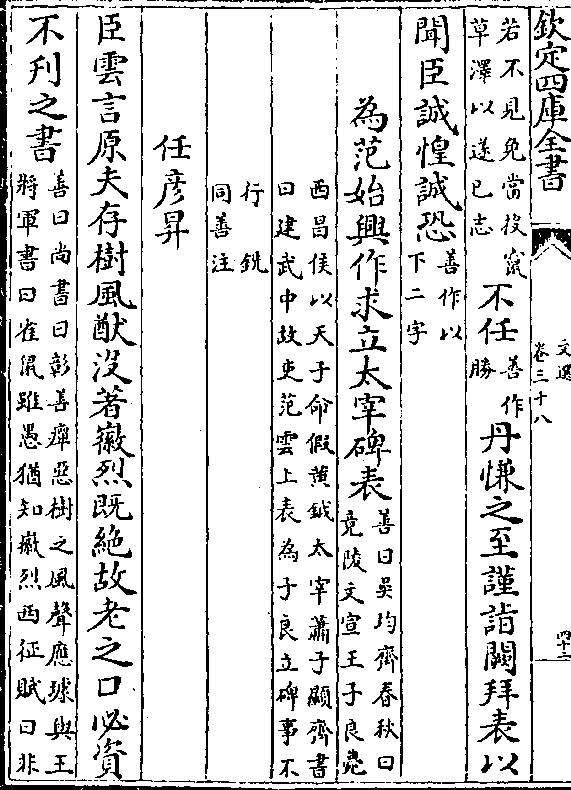 欽定四庫全書
文選
卷三十八
四十二
若不見免當投竄
草澤以遂已志
不任
善作
勝
丹慊之至謹詣闕拜表以
聞臣誠惶誠恐
善作以
下二字
為范始興作求立太宰碑表
善曰吳均齊春秋曰
竟陵文宣王子良薨
西昌侯以天子命假黄鉞太宰蕭子顯齊書
曰建武中故吏范雲上表為子良立碑事不
行銑
同善注
任彥昇
臣雲言原夫存樹風猷沒著徽烈既絶故老之口必資
不刋之書
善曰尚書曰彰善癉惡樹之風聲應璩與王
將軍書曰雀鼠雖愚猶知徽烈西征賦曰非